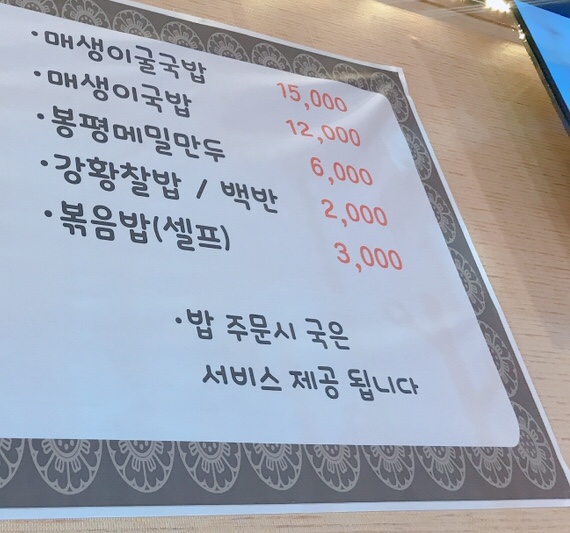 ·매생이굴국밥 15,000
·매생이국밥 12,000
·봉평메밀만두 6,000
·강황찰밥 / 백반 2,000
·볶음밥(셀프) 3,000
·밥 주문시 국은
서비스 제공 됩니다